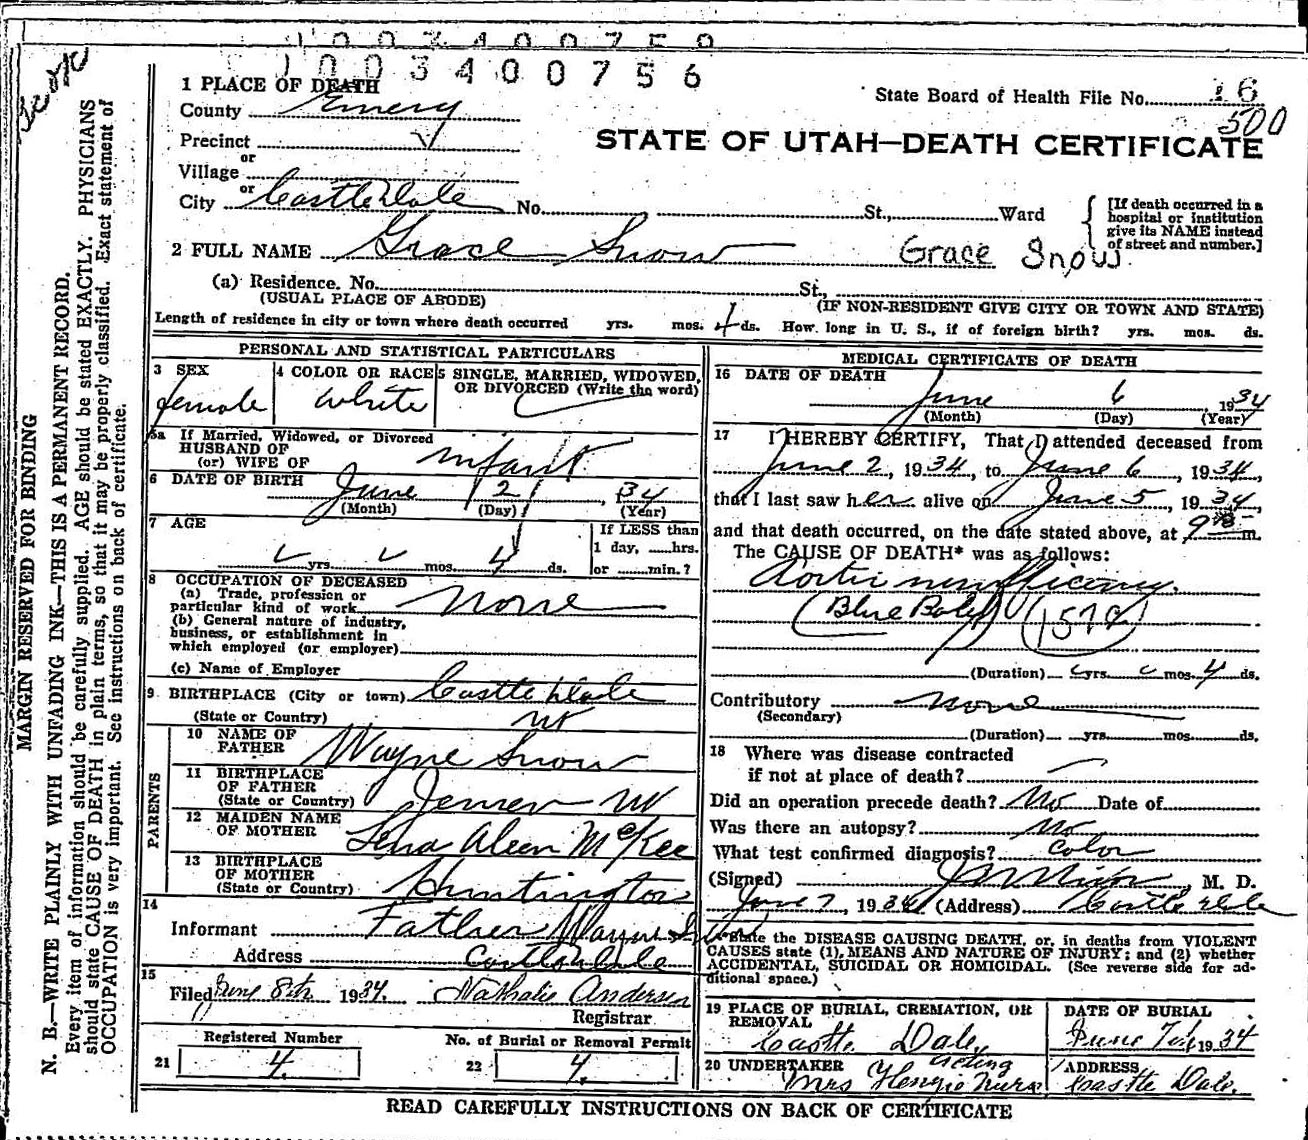 1003400759
1003400756
1 PLACE OF DEATH
County Emery
State Board of Health File No. 16
500
Precinct
STATE OF UTAH—DEATH CERTIFICATE
or
Village
or
City Castle Dale No. St., Ward
[If death occurred in a hospital or institution give its NAME instead of street and number.]
2 FULL NAME Grace Snow Grace Snow
(a) Residence. No. St.,
(USUAL PLACE OF ABODE) (IF NON-RESIDENT GIVE CITY OR TOWN AND STATE)
Length of residence in city or town where death occurred yrs. mos. 4 ds. How long in U. S., if of foreign birth? yrs. mos. ds.
PERSONAL AND STATISTICAL PARTICULARS
3 SEX 4 COLOR OR RACE 5 SINGLE, MARRIED, WIDOWED, OR DIVORCED (Write the word)
female White
5a If Married, Widowed, or Divorced
HUSBAND OF
(or) WIFE OF infant
6 DATE OF BIRTH June 2, 34
(Month) (Day) (Year)
7 AGE
If LESS than
1 day, hrs.
yrs. mos. 4 ds. or min.?
8 OCCUPATION OF DECEASED
(a) Trade, profession or
particular kind of work None
(b) General nature of industry,
business, or establishment in
which employed (or employer)
(c) Name of Employer
9 BIRTHPLACE (City or town) Castle Dale
(State or Country) Ut
PARENTS
10 NAME OF FATHER Wayne Snow
11 BIRTHPLACE OF FATHER (State or Country) Jensen Ut
12 MAIDEN NAME OF MOTHER Lena Aleen McKee
13 BIRTHPLACE OF MOTHER (State or Country) Huntington
14
Informant Father Wayne Snow
Address Castle Dale
15
Filed June 8th 1934. Nathalie Andersen
Registrar
Registered Number No. of Burial or Removal Permit
21 4 22 4
MEDICAL CERTIFICATE OF DEATH
16 DATE OF DEATH
June 6 1934
(Month) (Day) (Year)
17 I HEREBY CERTIFY, That I attended deceased from
June 2, 1934, to June 6, 1934,
that I last saw her alive on June 5, 1934,
and that death occurred, on the date stated above, at 9 m.
The CAUSE OF DEATH* was as follows:
Aortic insufficiency.
(Blue Baby) (157e)
(Duration) yrs. mos. 4 ds.
Contributory None
(Secondary)
(Duration) yrs. mos. ds.
18 Where was disease contracted
if not at place of death?
Did an operation precede death? No Date of
Was there an autopsy? No
What test confirmed diagnosis? Color
(Signed) , M. D.
June 7, 1934 (Address) Castle Dale
*State the DISEASE CAUSING DEATH, or, in deaths from VIOLENT
CAUSES state (1), MEANS AND NATURE OF INJURY; and (2) whether
ACCIDENTAL, SUICIDAL OR HOMICIDAL. (See reverse side for ad-
ditional space.)
19 PLACE OF BURIAL, CREMATION, OR REMOVAL DATE OF BURIAL
Castle Dale, June 7th 1934
20 UNDERTAKER acting ADDRESS
Mrs Nurse Castle Dale.
READ CAREFULLY INSTRUCTIONS ON BACK OF CERTIFICATE
MARGIN RESERVED FOR BINDING
N. B.—WRITE PLAINLY WITH UNFADING INK—THIS IS A PERMANENT RECORD.
Every item of information should be carefully supplied. AGE should be stated EXACTLY. PHYSICIANS
should state CAUSE OF DEATH in plain terms, so that it may be properly classified. Exact statement of
OCCUPATION is very important. See instructions on back of certificate.